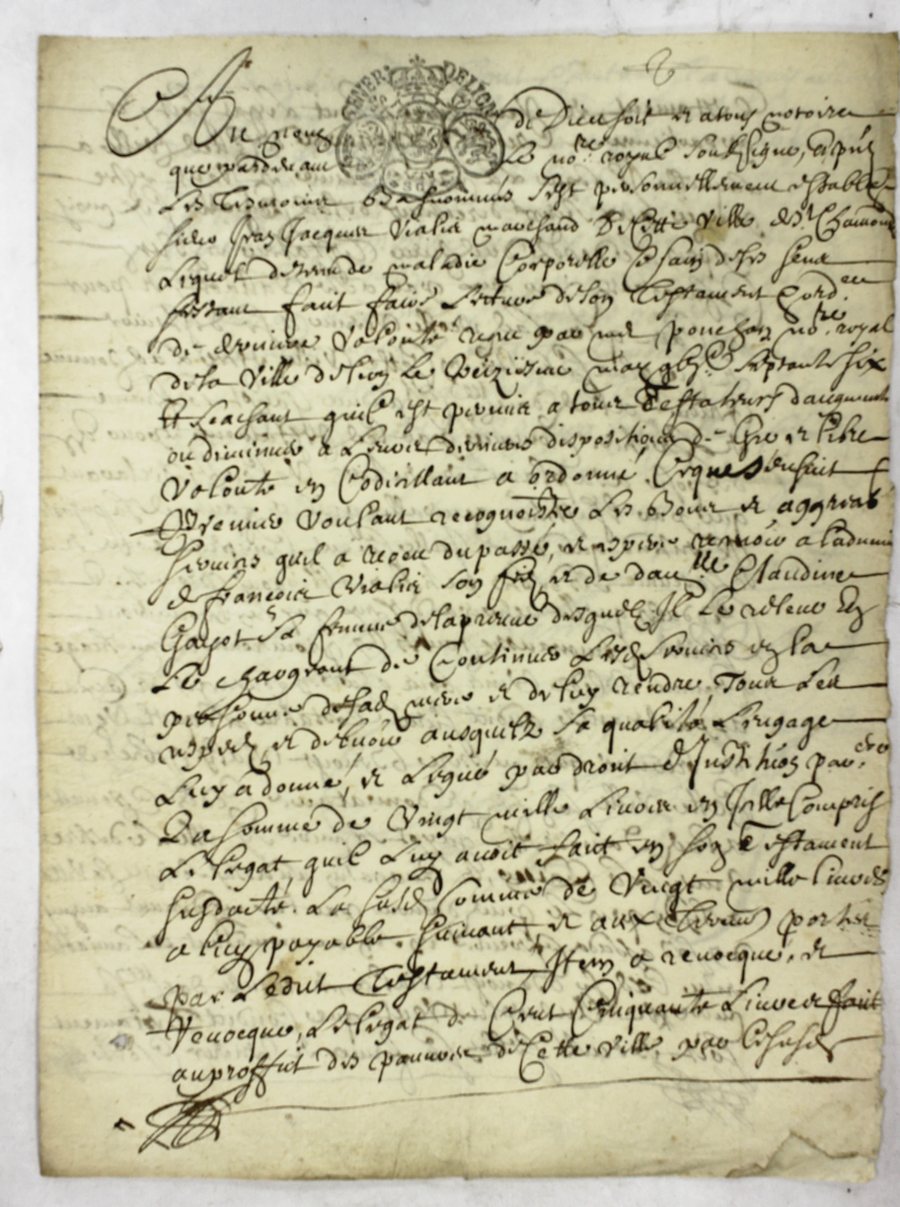 GENER DE LION
Au nom de Dieu soit et a tous notoire
que pardevant Le no.re royal soubsigne, et pns
Les Tesmoins bas nommés s'est personnellement establis
sieur Jean Jacques Vialis marchand de cette ville de St Chamond
Lequel detenu de maladie Corporelle et sain de ses sens
faisant faire Lecture de son Testament et ord.ce
de derniere Volonté receu par me ponchon no.re royal
de la Ville de Lion Le May gbjc septante six
Et scachant quil est permis a tous Testateurs daugmenter
ou diminuer a Leurs dernieres dispositions de Gre et libre
Volonté en Codicillant a ordonné Ce que sensuit
Premier voulant recognoistre Les bons et aggreab
services quil a receu du passé, et espere recevoir a ladvenir
de françois Vialis son filz et de dam.lle Claudine
Gayot sa femme desquelz Il Le releve Et
Le chargeant de Continuer Lesd services en la
personne de sad mere et de luy rendre Tous Les
respectz et debvoir ausquelz sa qualité L'engage
Luy a donné, et Legué par droit d'Institution par.ere
La somme de Vingt mille Livres en Icelle Compris
Le Legat quil Luy avoit faict en son Testament
susdacté. La susd somme de Vingt mille Livres
a luy payable suivant, et aux Termes portés
par Ledict Testament, Item a revocque, et
revocque, Le Legat de Cent Cinquante Livres faict
au proffict des pauvres de Cette ville par